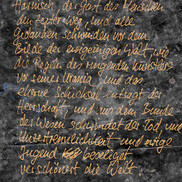 Harnisch, der Gast der Menschen
der letzte Weg, und alle
Gedanken schwinden vor dem
Bilde des einzigeinigen hält
die Regeln des ringenden Künstlers
vor seiner Urania und das
eherne Schicksal entsagt der
Herrschaft, und aus dem Bunde
der Wesen schwindet der Tod, und
Unzertrennlichkeit und ewige
Jugend beseliget
verschönert die Welt